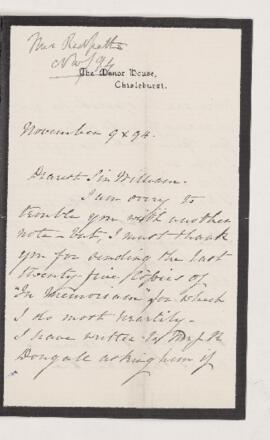 Mrs Redpath
Nov 9/94
The Manor House,
Chislehurst.
November 9 x 94.
Dearest Sir William.
I am sorry to
trouble you with another
note - but, I must thank
you for sending the last
twenty five Copies of
"In Memoriam" for which
I do most heartily.
I have written to
Dougall asking him if